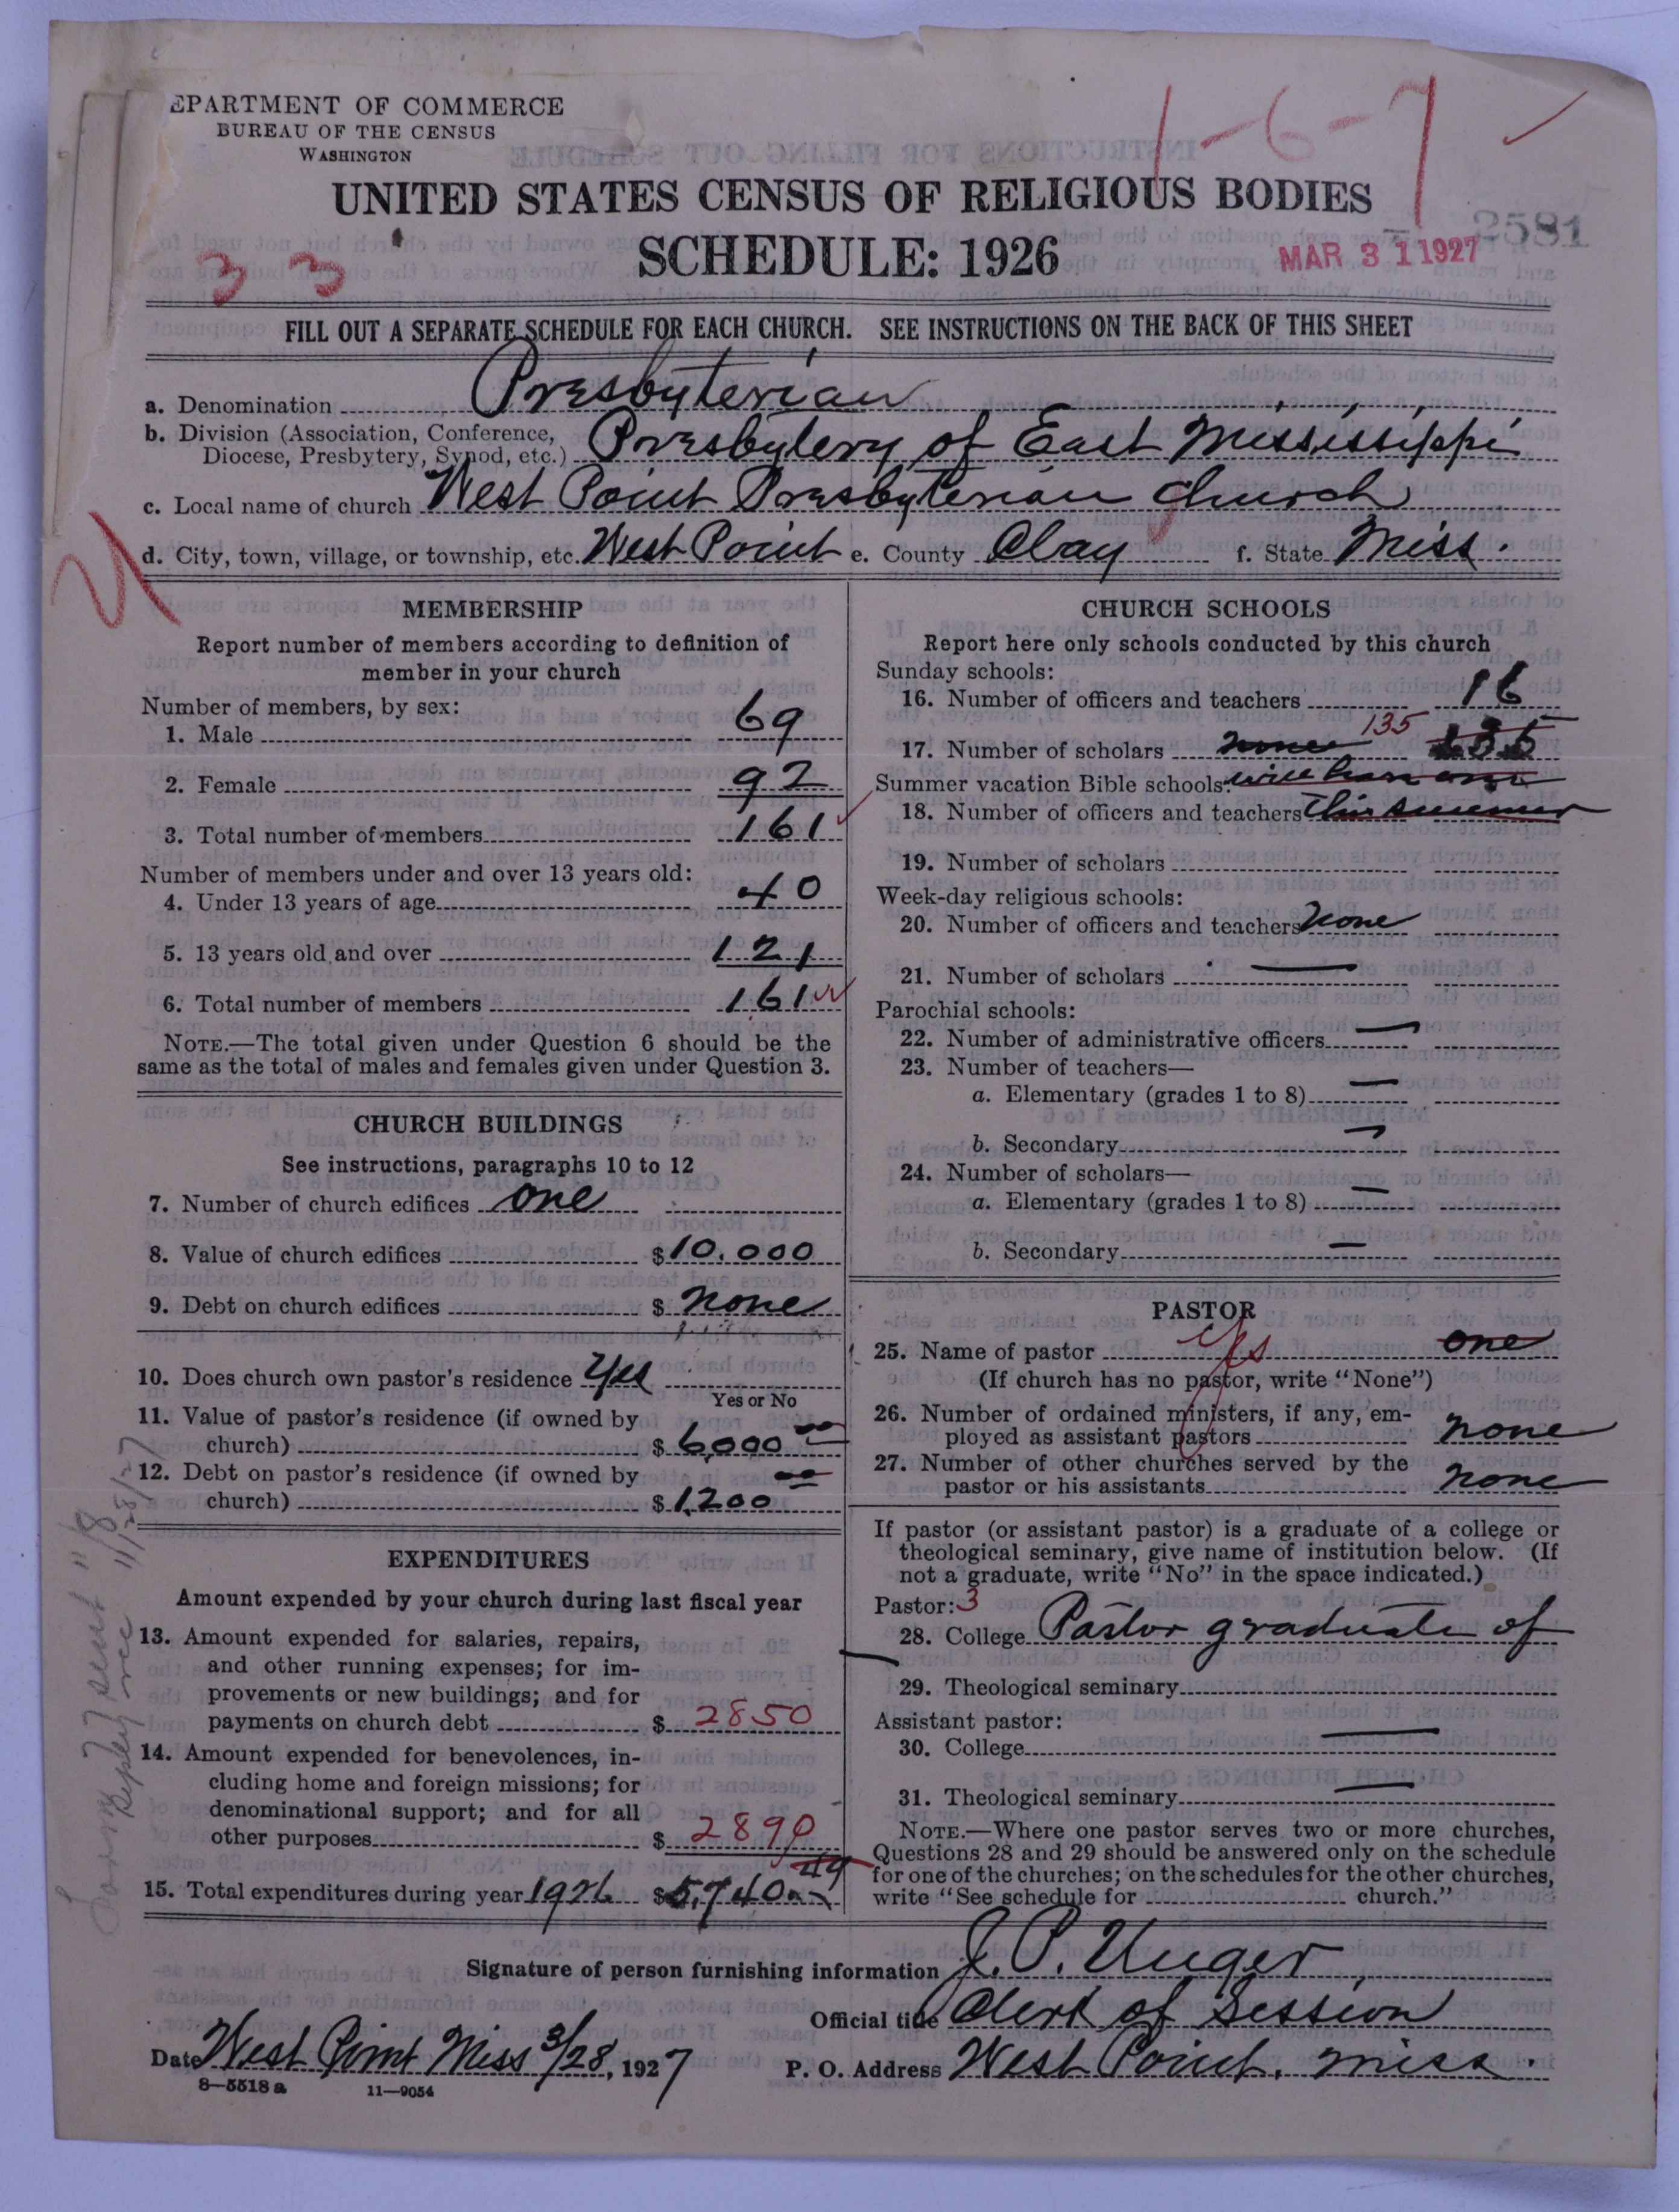 EPARTMENT OF COMMERCE
BUREAU OF THE CENSUS
WASHINGTON
1-6-7
UNITED STATES CENSUS OF RELIGIOUS BODIES
SCHEDULE: 1926
2581
MAR 31 1927
33
FILL OUT A SEPARATE SCHEDULE FOR EACH CHURCH. SEE INSTRUCTIONS ON THE BACK OF THIS SHEET
a. Denomination Presbyterian
b. Division (Association, Conference, Diocese, Presbytery, Synod, etc.) Presbytery of East Mississippi
c. Local name of church West Point Presbyterian Church
d. City, town, village, or township, etc. West Point e. County Clay f. State Miss.
MEMBERSHIP
Report number of members according to definition of
member in your church
Number of members, by sex:
1. Male 69
2. Female 92
3. Total number of members 161
Number of members under and over 13 years old:
4. Under 13 years of age 40
5. 13 years old and over 121
6. Total number of members 161
NOTE.—The total given under Question 6 should be the
same as the total of males and females given under Question 3.
CHURCH BUILDINGS
See instructions, paragraphs 10 to 12
7. Number of church edifices one
8. Value of church edifices $10.000
9. Debt on church edifices $ none
10. Does church own pastor's residence Yes
Yes or No
11. Value of pastor's residence (if owned by
church) $ 6,000 00
12. Debt on pastor's residence (if owned by
church) $ 1,200 00
EXPENDITURES
Amount expended by your church during last fiscal year
13. Amount expended for salaries, repairs,
and other running expenses; for im-
provements or new buildings; and for
payments on church debt $ 2850
14. Amount expended for benevolences, in-
cluding home and foreign missions; for
denominational support; and for all
other purposes $ 2890
15. Total expenditures during year 1926 $5,740 49
CHURCH SCHOOLS
Report here only schools conducted by this church
Sunday schools:
16. Number of officers and teachers 16
17. Number of scholars none 135 135
Summer vacation Bible schools: will have one
18. Number of officers and teachers this summer
19. Number of scholars
Week-day religious schools:
20. Number of officers and teachers none
21. Number of scholars
Parochial schools:
22. Number of administrative officers
23. Number of teachers—
a. Elementary (grades 1 to 8)
b. Secondary
24. Number of scholars—
a. Elementary (grades 1 to 8)
b. Secondary
PASTOR
25. Name of pastor yes one
(If church has no pastor, write "None")
26. Number of ordained ministers, if any, em-
ployed as assistant pastors none
27. Number of other churches served by the
pastor or his assistants none
If pastor (or assistant pastor) is a graduate of a college or
theological seminary, give name of institution below. (If
not a graduate, write "No" in the space indicated.)
Pastor: 3
28. College Pastor graduate of
29. Theological seminary
Assistant pastor:
30. College
31. Theological seminary
NOTE.—Where one pastor serves two or more churches,
Questions 28 and 29 should be answered only on the schedule
for one of the churches; on the schedules for the other churches,
write "See schedule for church."
Signature of person furnishing information J. P. Unger
Official title Clerk of Session
Date West Point Miss 3/28, 1927 P. O. Address West Point, Miss.
8—5518 a 11—9054
sent 11/8
Reply rec 11/28/27